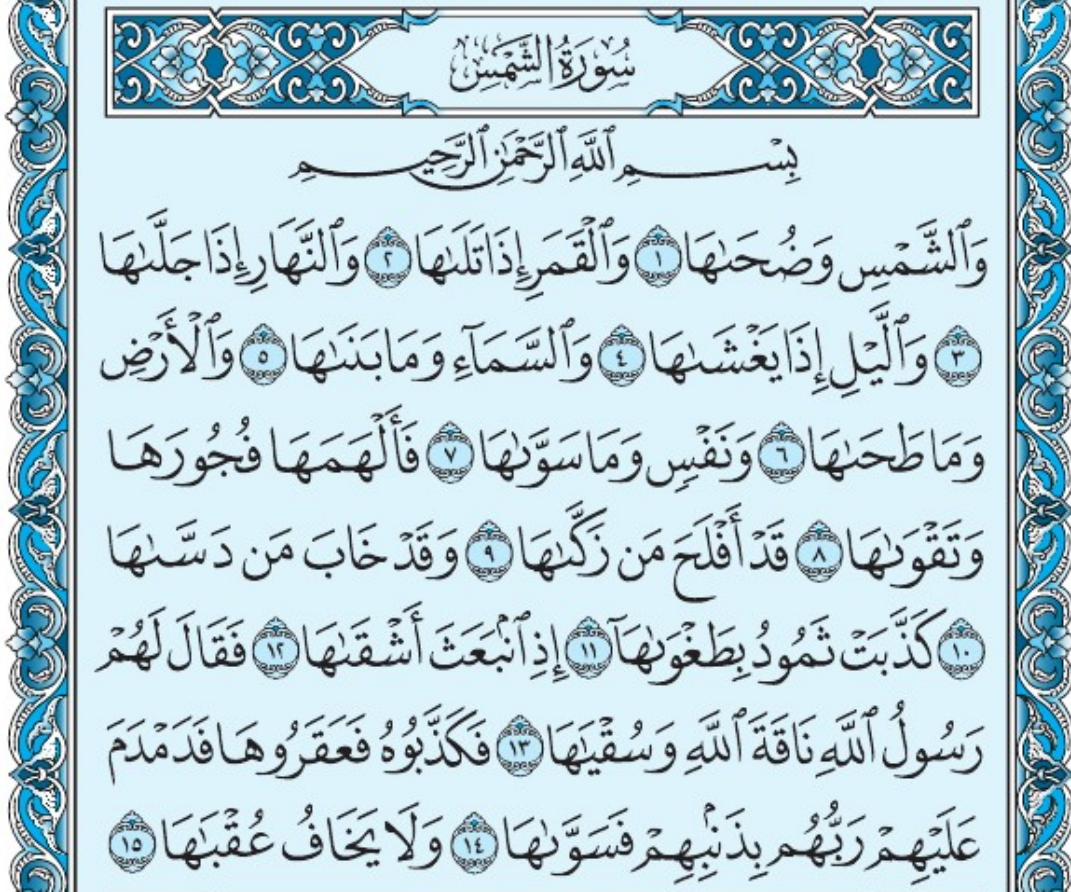 سُورَةُ الشَّمْسِ
بِسْمِ ٱللَّهِ ٱلرَّحْمَٰنِ ٱلرَّحِيمِ
وَٱلشَّمْسِ وَضُحَىٰهَا ١ وَٱلْقَمَرِ إِذَا تَلَىٰهَا ٢ وَٱلنَّهَارِ إِذَا جَلَّىٰهَا
٣ وَٱلَّيْلِ إِذَا يَغْشَىٰهَا ٤ وَٱلسَّمَآءِ وَمَا بَنَىٰهَا ٥ وَٱلْأَرْضِ
وَمَا طَحَىٰهَا ٦ وَنَفْسٍ وَمَا سَوَّىٰهَا ٧ فَأَلْهَمَهَا فُجُورَهَا
وَتَقْوَىٰهَا ٨ قَدْ أَفْلَحَ مَن زَكَّىٰهَا ٩ وَقَدْ خَابَ مَن دَسَّىٰهَا
١٠ كَذَّبَتْ ثَمُودُ بِطَغْوَىٰهَآ ١١ إِذِ ٱنۢبَعَثَ أَشْقَىٰهَا ١٢ فَقَالَ لَهُمْ
رَسُولُ ٱللَّهِ نَاقَةَ ٱللَّهِ وَسُقْيَٰهَا ١٣ فَكَذَّبُوهُ فَعَقَرُوهَا فَدَمْدَمَ
عَلَيْهِمْ رَبُّهُم بِذَنۢبِهِمْ فَسَوَّىٰهَا ١٤ وَلَا يَخَافُ عُقْبَٰهَا ١٥